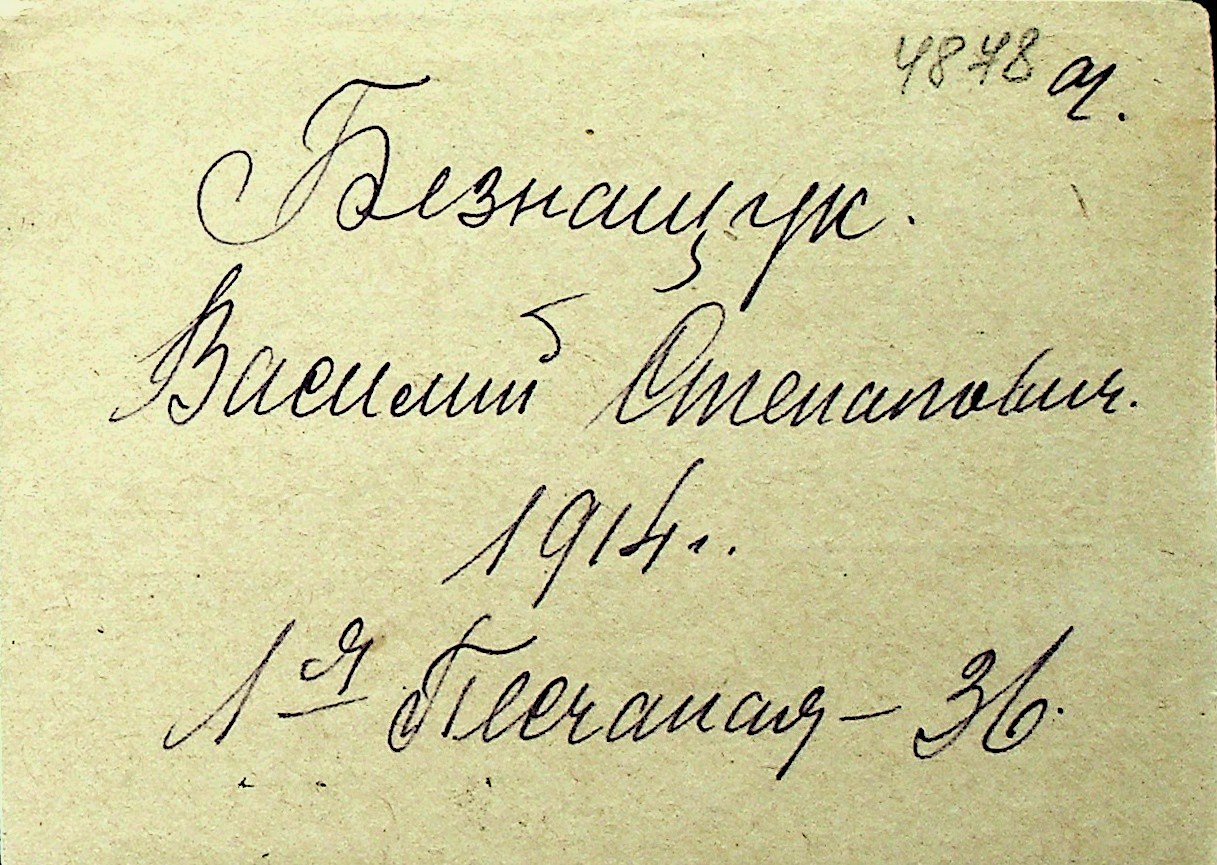 4878 а.
Безнащук.
Василий Степанович.
1914 г.
1я Песчаная – 36.